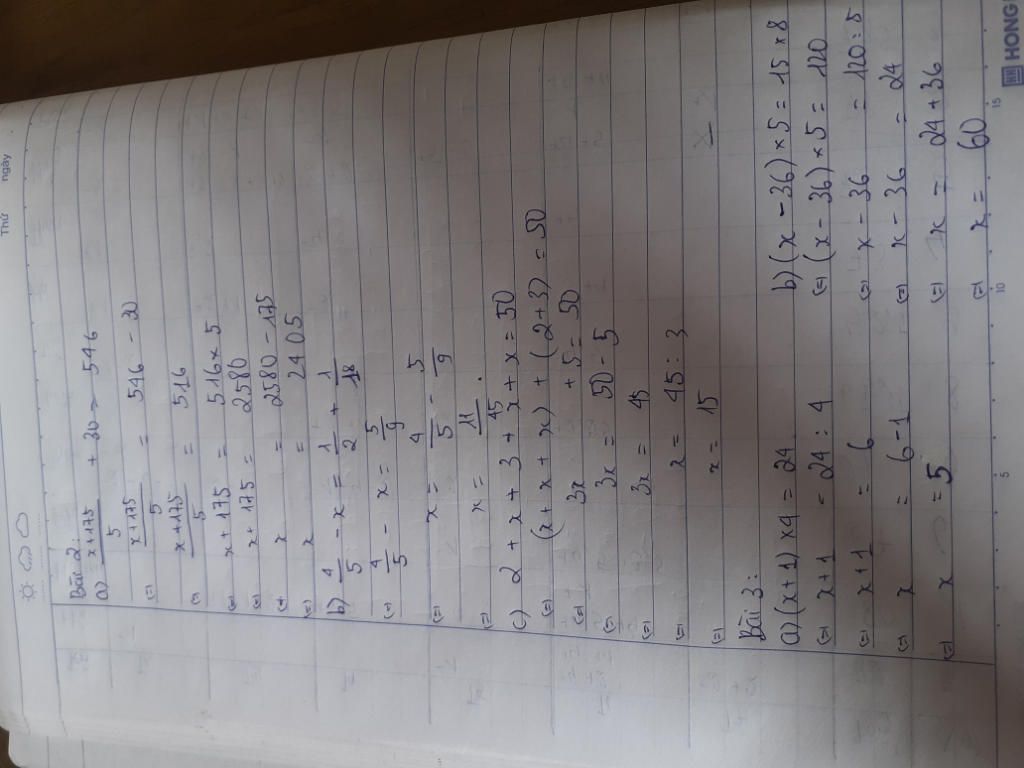 Thứ
ngày
Bài 2:
a) (x+175)/5 + 30 = 546
(=) (x+175)/5 = 546 - 30
(=) (x+175)/5 = 516
(=) x+175 = 516 x 5
(=) x+175 = 2580
(=) x = 2580 - 175
(=) x = 2405
b) 4/5 - x = 1/2 + 1/18
(=) 4/5 - x = 5/9
(=) x = 4/5 - 5/9
(=) x = 11/45
c) 2 + x + 3 + x + x = 50
(=) (x + x + x) + (2+3) = 50
(=) 3x + 5 = 50
(=) 3x = 50 - 5
(=) 3x = 45
(=) x = 45 : 3
(=) x = 15
Bài 3:
a) (x+1) x 4 = 24
(=) x+1 = 24 : 4
(=) x+1 = 6
(=) x = 6-1
(=) x = 5
b) (x - 36) x 5 = 15 x 8
(=) (x - 36) x 5 = 120
(=) x - 36 = 120 : 5
(=) x - 36 = 24
(=) x = 24 + 36
(=) x = 60
5
10
15
HONG